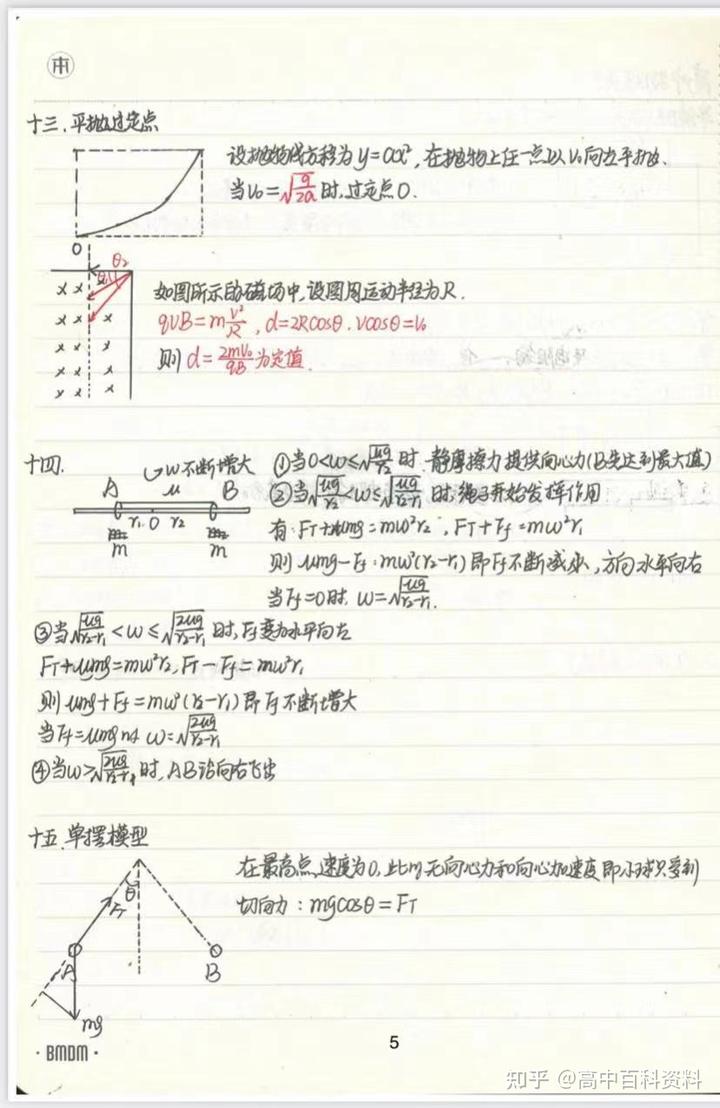 本
十三.平抛过定点
设抛物线方程为y=ax²,在抛物上任一点以v₀向左平抛.
当v₀=√(g/2a)时.过定点O.
O
θ₂
θ₁
如图所示的磁场中,设圆周运动半径为R.
qvB=m v²/R , d=2Rcosθ . vcosθ=v₀
则d=2mv₀/qB为定值.
十四.
w不断增大
A μ B
r₁ O r₂
m m
①当0<w≤√(μg/r₂)时.静摩擦力提供向心力(B先达到最大值)
②当√(μg/r₂)<w≤√(μg/r₂-r₁)时.绳子开始发挥作用
有:F_T+μmg=mw²r₂ , F_T+F_f=mw²r₁
则 μmg-F_f=mw²(r₂-r₁)即F_f不断减小,方向水平向右
当F_f=0时. w=√(μg/r₂-r₁).
③当√(μg/r₂-r₁)<w≤√(2μg/r₂-r₁)时,F_f变为水平向左
F_T+μmg=mw²r₂,F_T-F_f=mw²r₁
则μmg+F_f=mw²(r₂-r₁)即F_f不断增大
当F_f=μmg时 w=√(2μg/r₂-r₁)
④当w>√(2μg/r₂-r₁)时,AB沿向右飞出
十五.单摆模型
在最高点,速度为0,此时无向心力和向心加速度即小球只受到
切向力:mgcosθ=F_T
θ
F_T
A B
mg
·BMDM·
5
知乎 @高中百科资料